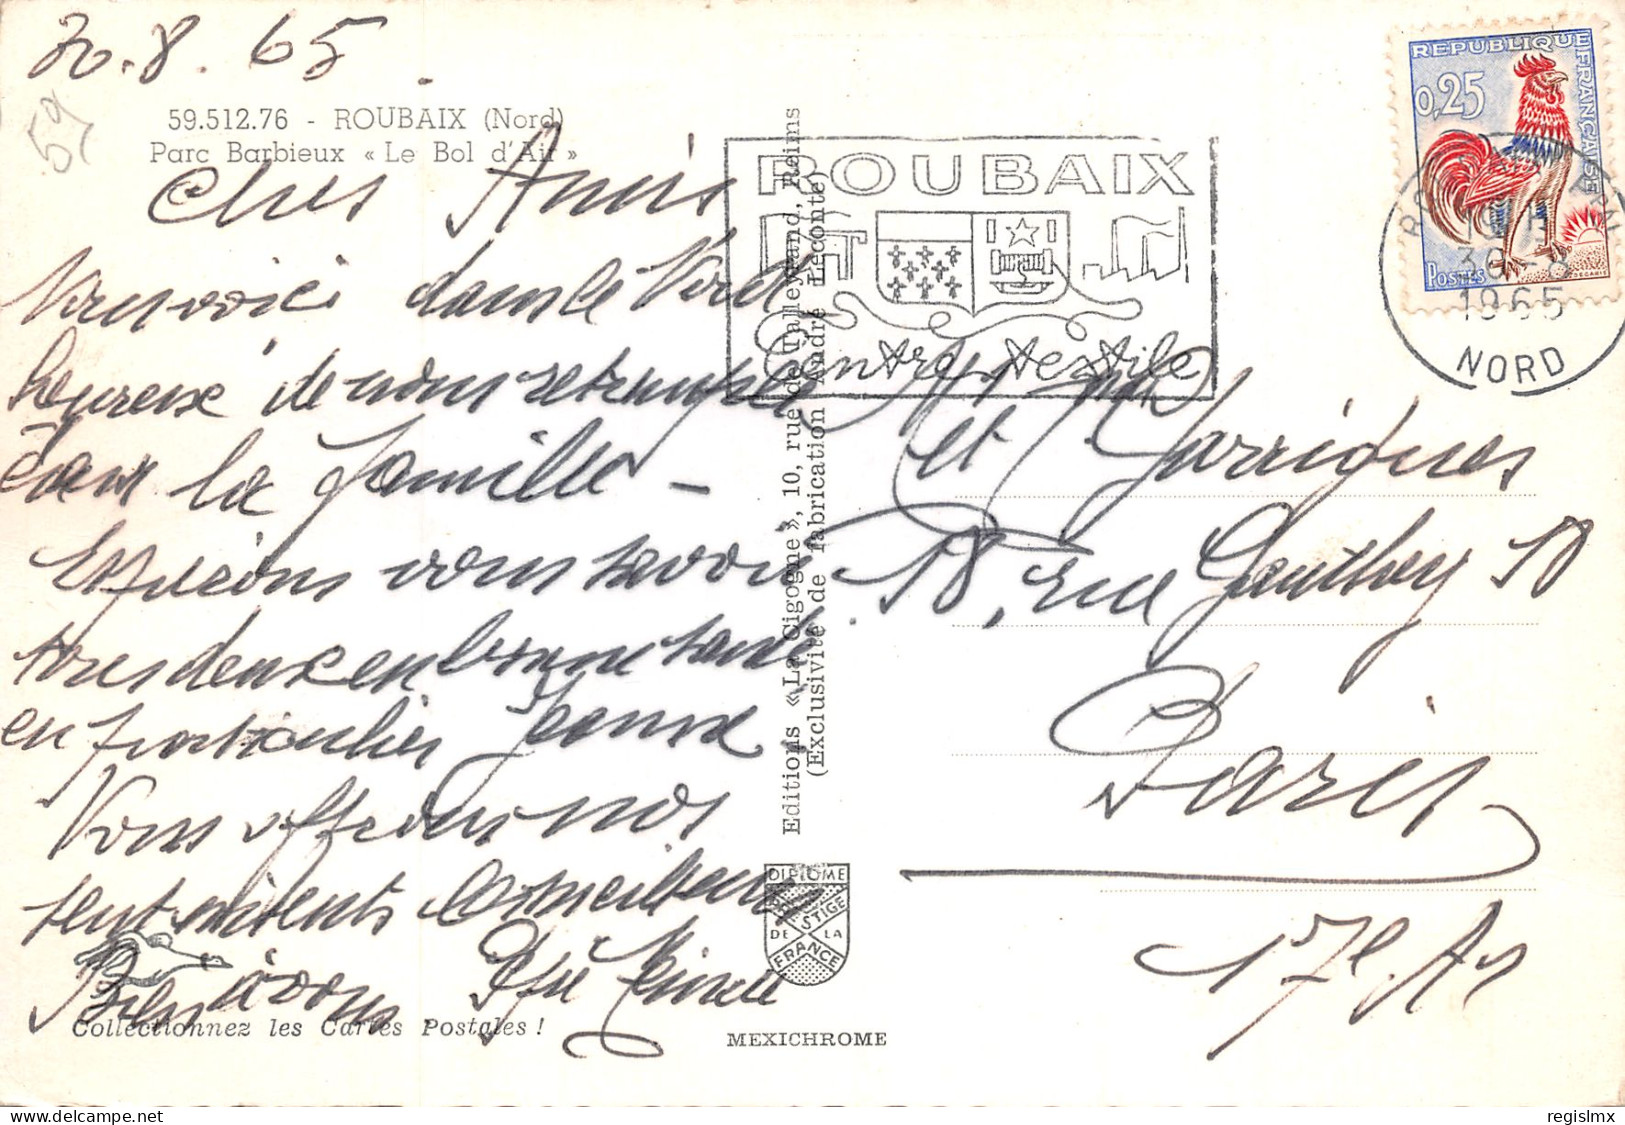 30.8.65
59
59.512.76 - ROUBAIX (Nord)
Parc Barbieux « Le Bol d'Air »
Chers Amis
Nous voici dans le Nord
heureux de nous retrouver
dans la famille –
Espérons vous savoir
tous deux en bonne santé
en particulier
Vous offrons nos
sentiments les meilleurs
Bien à vous
Collectionnez les Cartes Postales !
Editions « La Cigogne », 10, rue de Talleyrand, Reims
(Exclusivité de fabrication André Leconte)
DIPLOME
PRESTIGE
DE LA
FRANCE
MEXICHROME
ROUBAIX
Centre textile
REPUBLIQUE FRANÇAISE
0,25
POSTES
DECARIS
30-8
1965
NORD
et Garrigues
18, rue Gauthey 18
Paris
17e. Ar
regislmx